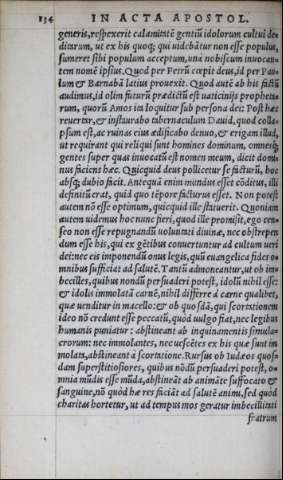 134 IN ACTA APOSTOL.
generis, respexerit calamitatē gentiū idolorum cultui de
ditarum, ut ex his quoq; qui uidebātur non esse populus,
sumeret sibi populum acceptum, unà nobiscum inuocan
tem nomē ipsius. Quod per Petrū cœpit deus, id per Pau
lum & Barnabā latius prouexit. Quod autē ab his factū
audimus, id olim futurū prædictū est uaticinijs propheta
rum, quorū Amos ita loquitur sub persona dei: Post hæc
reuertar, & instaurabo tabernaculum Dauid, quod colla-
psum est, ac ruinas eius ædificabo denuo, & erigam illud,
ut requirant qui reliqui sunt homines dominum, omnesq́;
gentes super quas inuocatū est nomen meum, dicit domi
nus faciens hæc. Quicquid deus pollicetur se facturū, hoc
absq; dubio ficit. Antequā enim mundus esset cōditus, illi
definitū erat, quid quo tēpore facturus esset. Non potest
autem nō esse optimum, quicquid ille statuerit. Quoniam
autem uidemus hoc nunc fieri, quod ille promisit, ego cen-
seo non esse repugnandū uoluntati diuinæ, nec obstrepen
dum esse his, qui ex gētibus conuertuntur ad cultum ueri
dei: nec eis imponendū onus legis, quū euangelica fides o-
mnibus sufficiat ad salutē. Tantū admoneantur, ut ob im-
becilles, quibus nondū persuaderi potest, idolū nihil esse:
& idolis immolatā carnē, nihil differre à carne qualibet,
quæ uenditur in macello: & ob quosdā, qui scortationem
ideo nō credunt esse peccatū, quòd uulgo fiat, nec legibus
humanis puniatur : abstineant ab inquinamentis simula-
crorum: nec immolantes, nec uescētes ex his quæ sunt im
molata, abstineant à scortatione. Rursus ob Iudæos quos-
dam superstitiosiores, quibus nōdū persuaderi potest, o-
mnia mūdis esse mūda, abstineāt ab animāte suffocato &
sanguine, nō quòd hæ res faciāt ad salutē animi, sed quòd
charitas hortetur, ut ad tempus mos geratur imbecillitati
fratrum